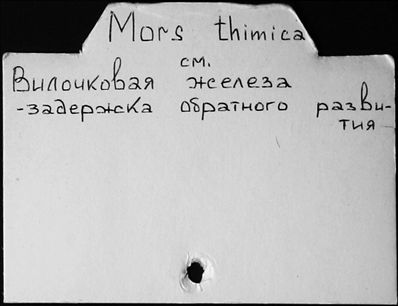 Mors thimica
см.
Вилочковая железа
-задержка обратного разви-
тия